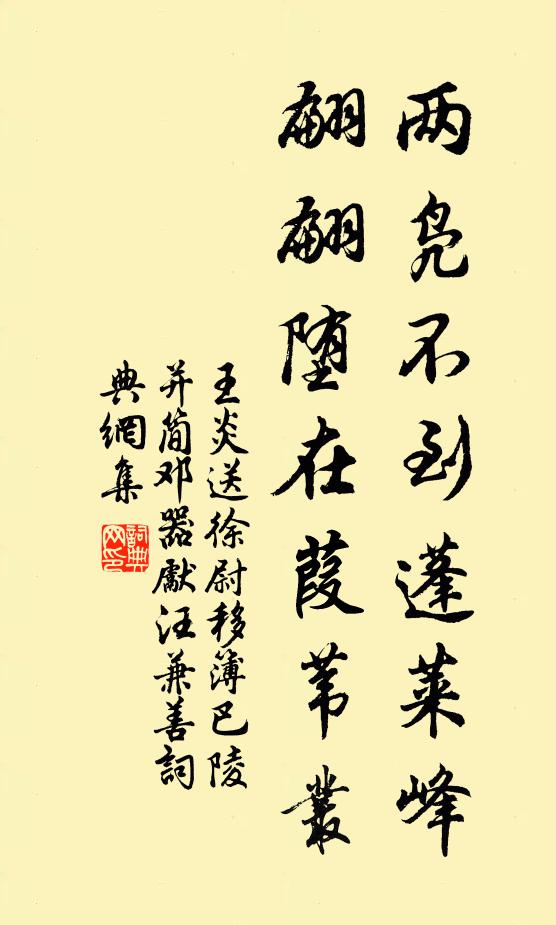 两凫不到蓬莱峰
翩翩堕在葭苇丛
王炎送徐尉移簿巴陵
并简邓器献汪兼善詞
典網集
詞典网印